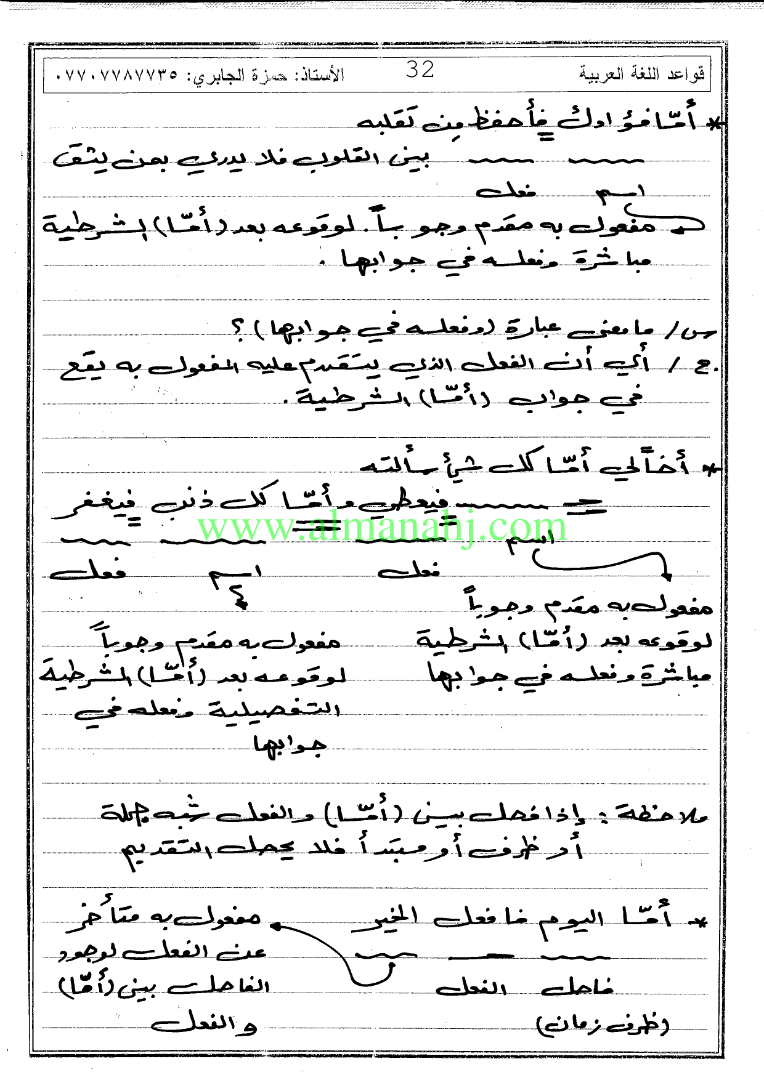 قواعد اللغة العربية 32 الأستاذ: حمزة الجابري: ٠٧٧٠٧٧٨٧٧٣٥
* أمّا فؤادك فأحفظ من تقلبه
بين القلوب فلا يدري بمن يثق
اسم فعل
مفعول به مقدم وجوباً. لوقوعه بعد (أمّا) الشرطية
مباشرة وفعله في جوابها .
س/ ما معنى عبارة (وفعله في جوابها) ؟
ج / أي أن الفعل الذي يتقدم عليه المفعول به يقع
في جواب (أمّا) الشرطية .
* أخاً لي أمّا كل شيء سألته
فيعطي وأمّا كل ذنب فيغفر
www.almanahj.com
اسم فعل اسم فعل
مفعول به مقدم وجوباً
لوقوعه بعد (أمّا) الشرطية
مباشرة وفعله في جوابها
مفعول به مقدم وجوباً
لوقوعه بعد (أمّا) الشرطية
التفصيلية وفعله في
جوابها
ملاحظة : إذا فصل بين (أمّا) والفعل شبه جملة
أو ظرف أو مبتدأ فلا يحصل التقديم
* أمّا اليوم فافعل الخير
فاصل الفعل
(ظرف زمان)
مفعول به متأخر
عن الفعل لوجود
الفاصل بين (أمّا)
والفعل